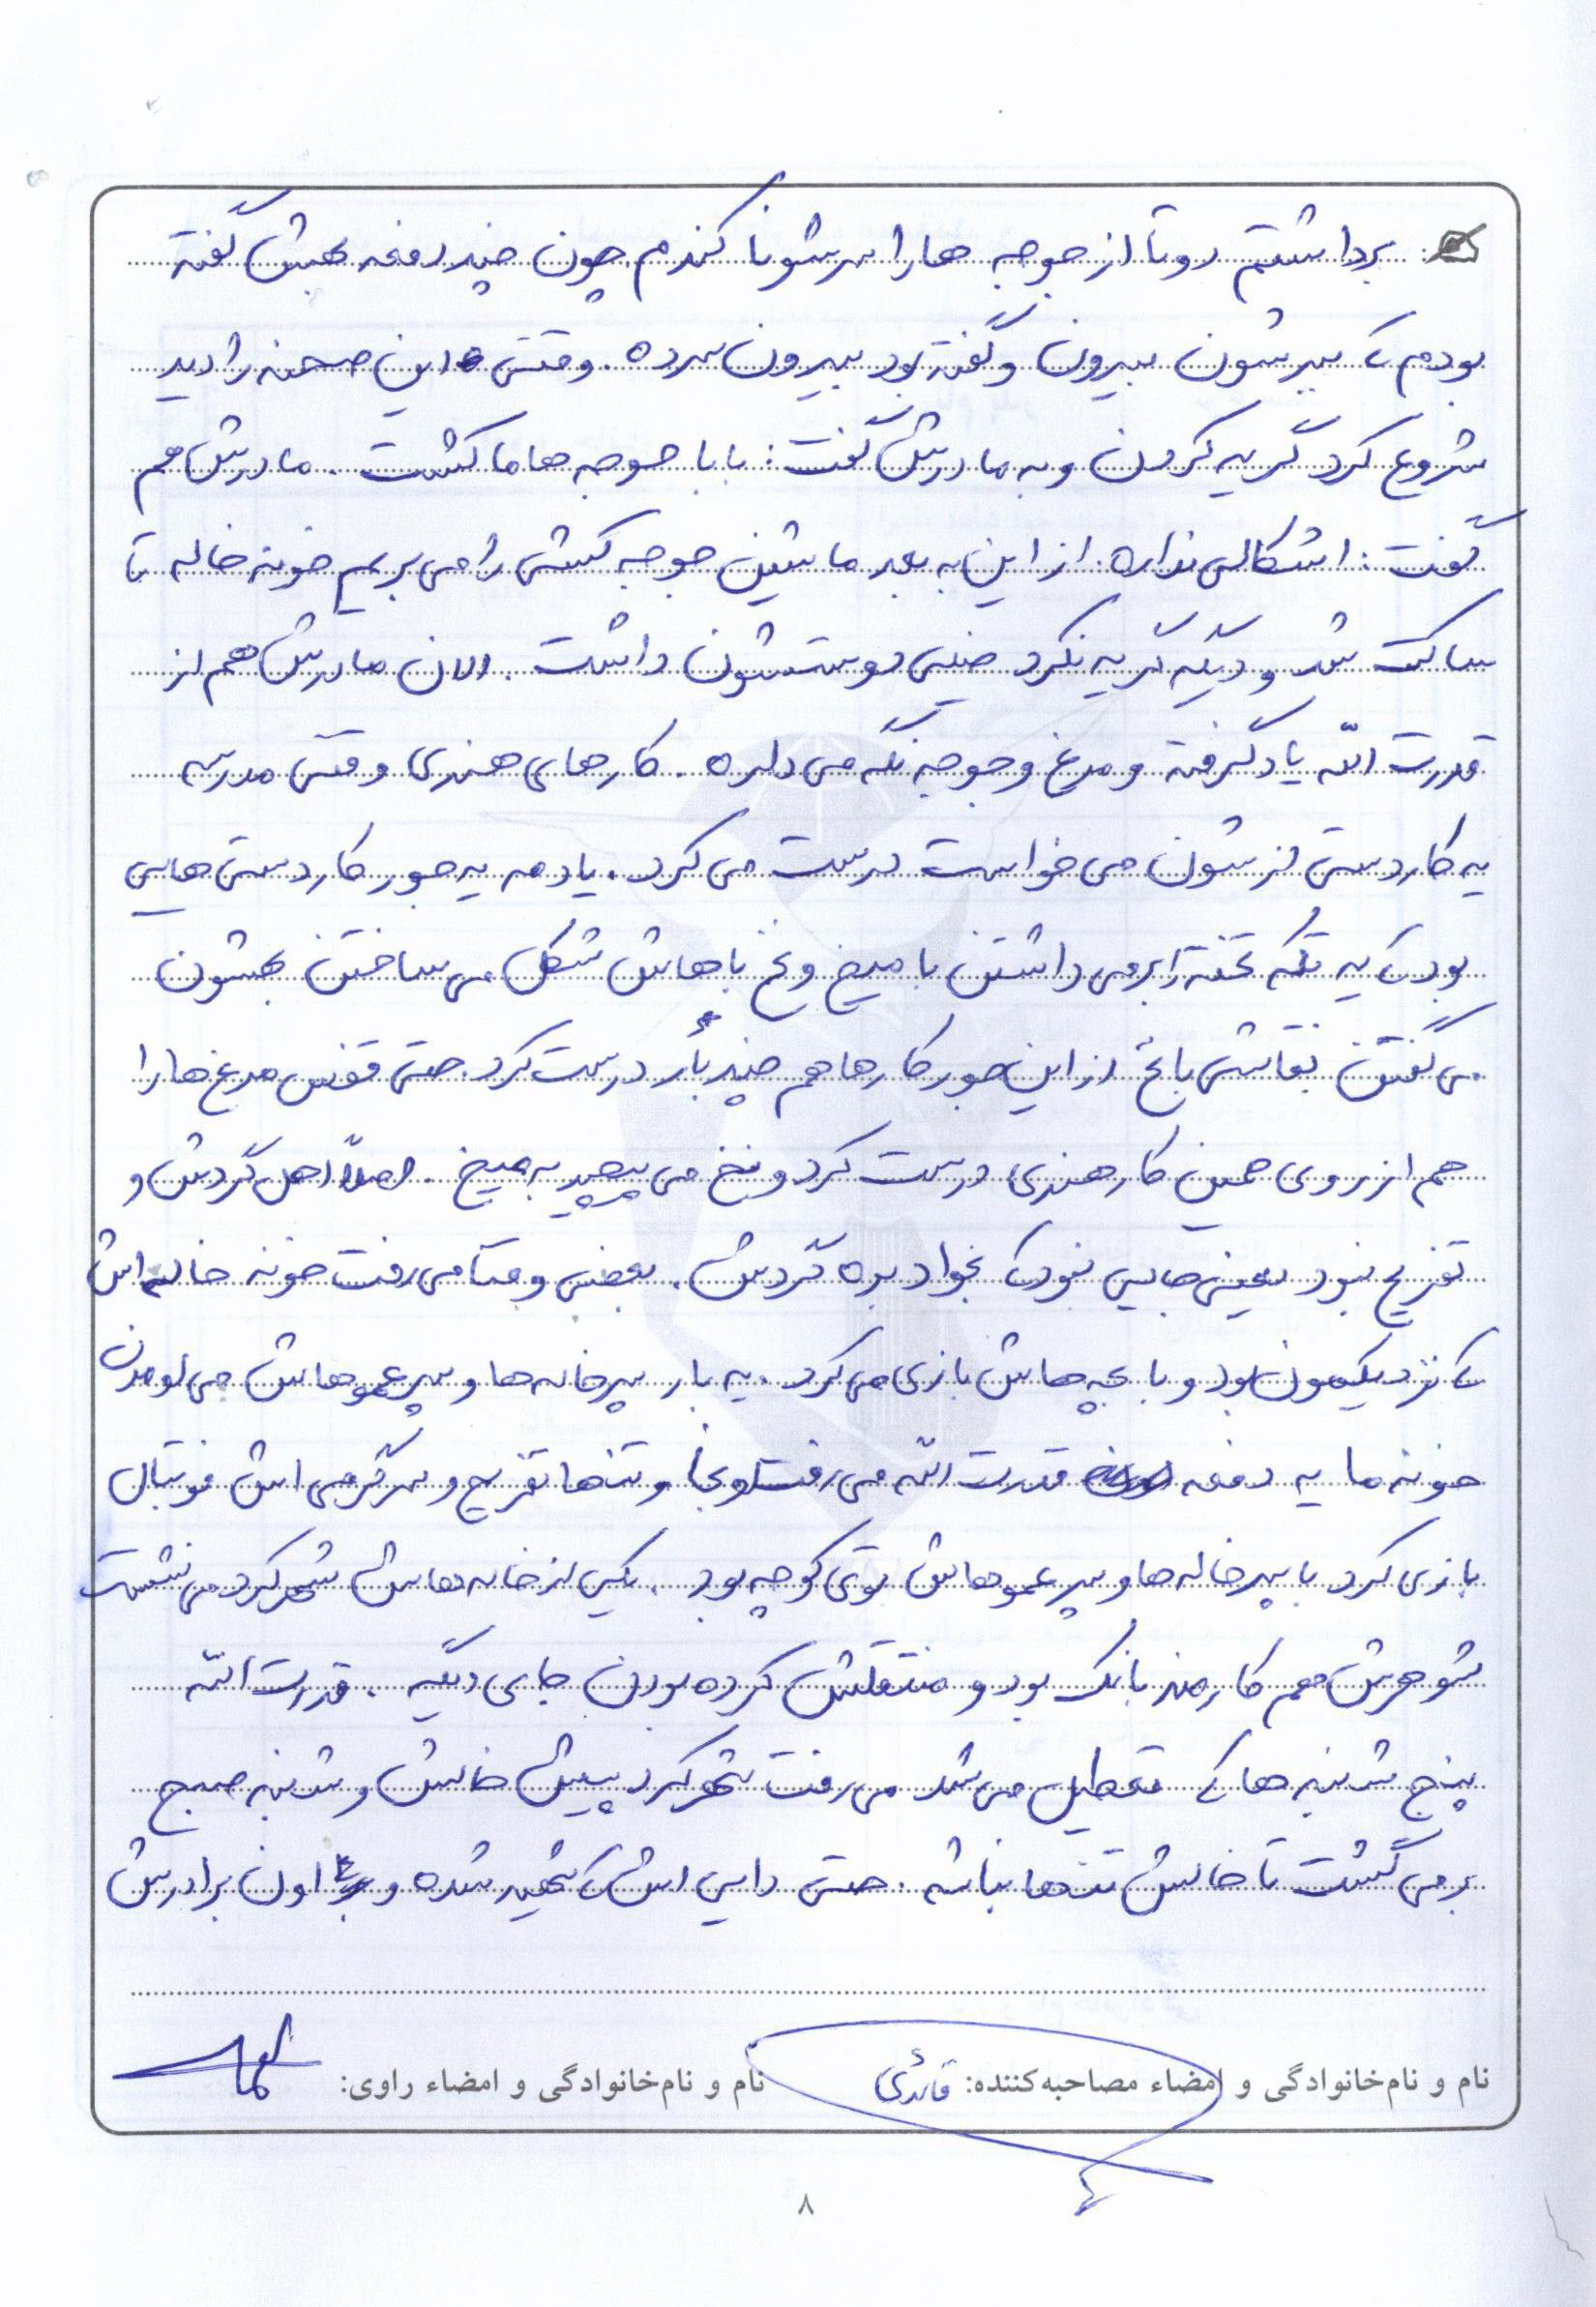 برداشتم دوتا از جوجه ها را سرشونا کندم چون چند دفعه بهش گفته
بودم که ببرشون بیرون و گفته بود بیرون سرده. وقتی این صحنه را دید
شروع کرد گریه کردن و به مادرش گفت: بابا جوجه هاما کشت. مادرش هم
گفت: اشکالی نداره. از این به بعد ماشین جوجه کشی را می بریم خونه خاله تا
ساکت شد و دیگه گریه نکرد خیلی دوستشون داشت. الان مادرش هم از
قدرت الله یاد گرفته و مرغ و جوجه نگه می داره. کارهای هنری وقتی مدرسه
یه کاردستی ازشون می خواست درست می کرد. یادمه یه جور کاردستی هایی
بود که یه تکه تخته را برمی داشتن با میخ و نخ باهاش شکل می ساختن بهشون
می گفتن نقاشی با نخ از این جور کارها هم چند بار درست کرد. حتی قفس مرغ ها را
هم از روی همین کار هنری درست کرد و نخ می پیچید به میخ. اصلاً اهل گردش و
تفریح نبود یعنی جایی نبود که بخواد بره گردش. بعضی وقتا می رفت خونه خاله اش
که نزدیکمون بود و با بچه هاش بازی می کرد. یه بار پسرخاله ها و پسرعموهاش می اومدن
خونه ما یه دفعه قدرت الله می رفت اونجا و تنها تفریح و سرگرمی اش فوتبال
بازی کرد با پسرخاله ها و پسرعموهاش توی کوچه بود. یکی از خاله هاش شهرکرد می نشست
شوهرش هم کارمند بانک بود و منتقلش کرده بودن جای دیگه. قدرت الله
پنج شنبه ها که تعطیل می شد می رفت شهرکرد پیش خالش و شنبه صبح
برمی گشت تا خالش تنها نباشه. حتی دایی اش که شهید شده و اون برادرش
نام و نام‌خانوادگی و امضاء مصاحبه‌کننده: قائدی نام و نام‌خانوادگی و امضاء راوی:
۸